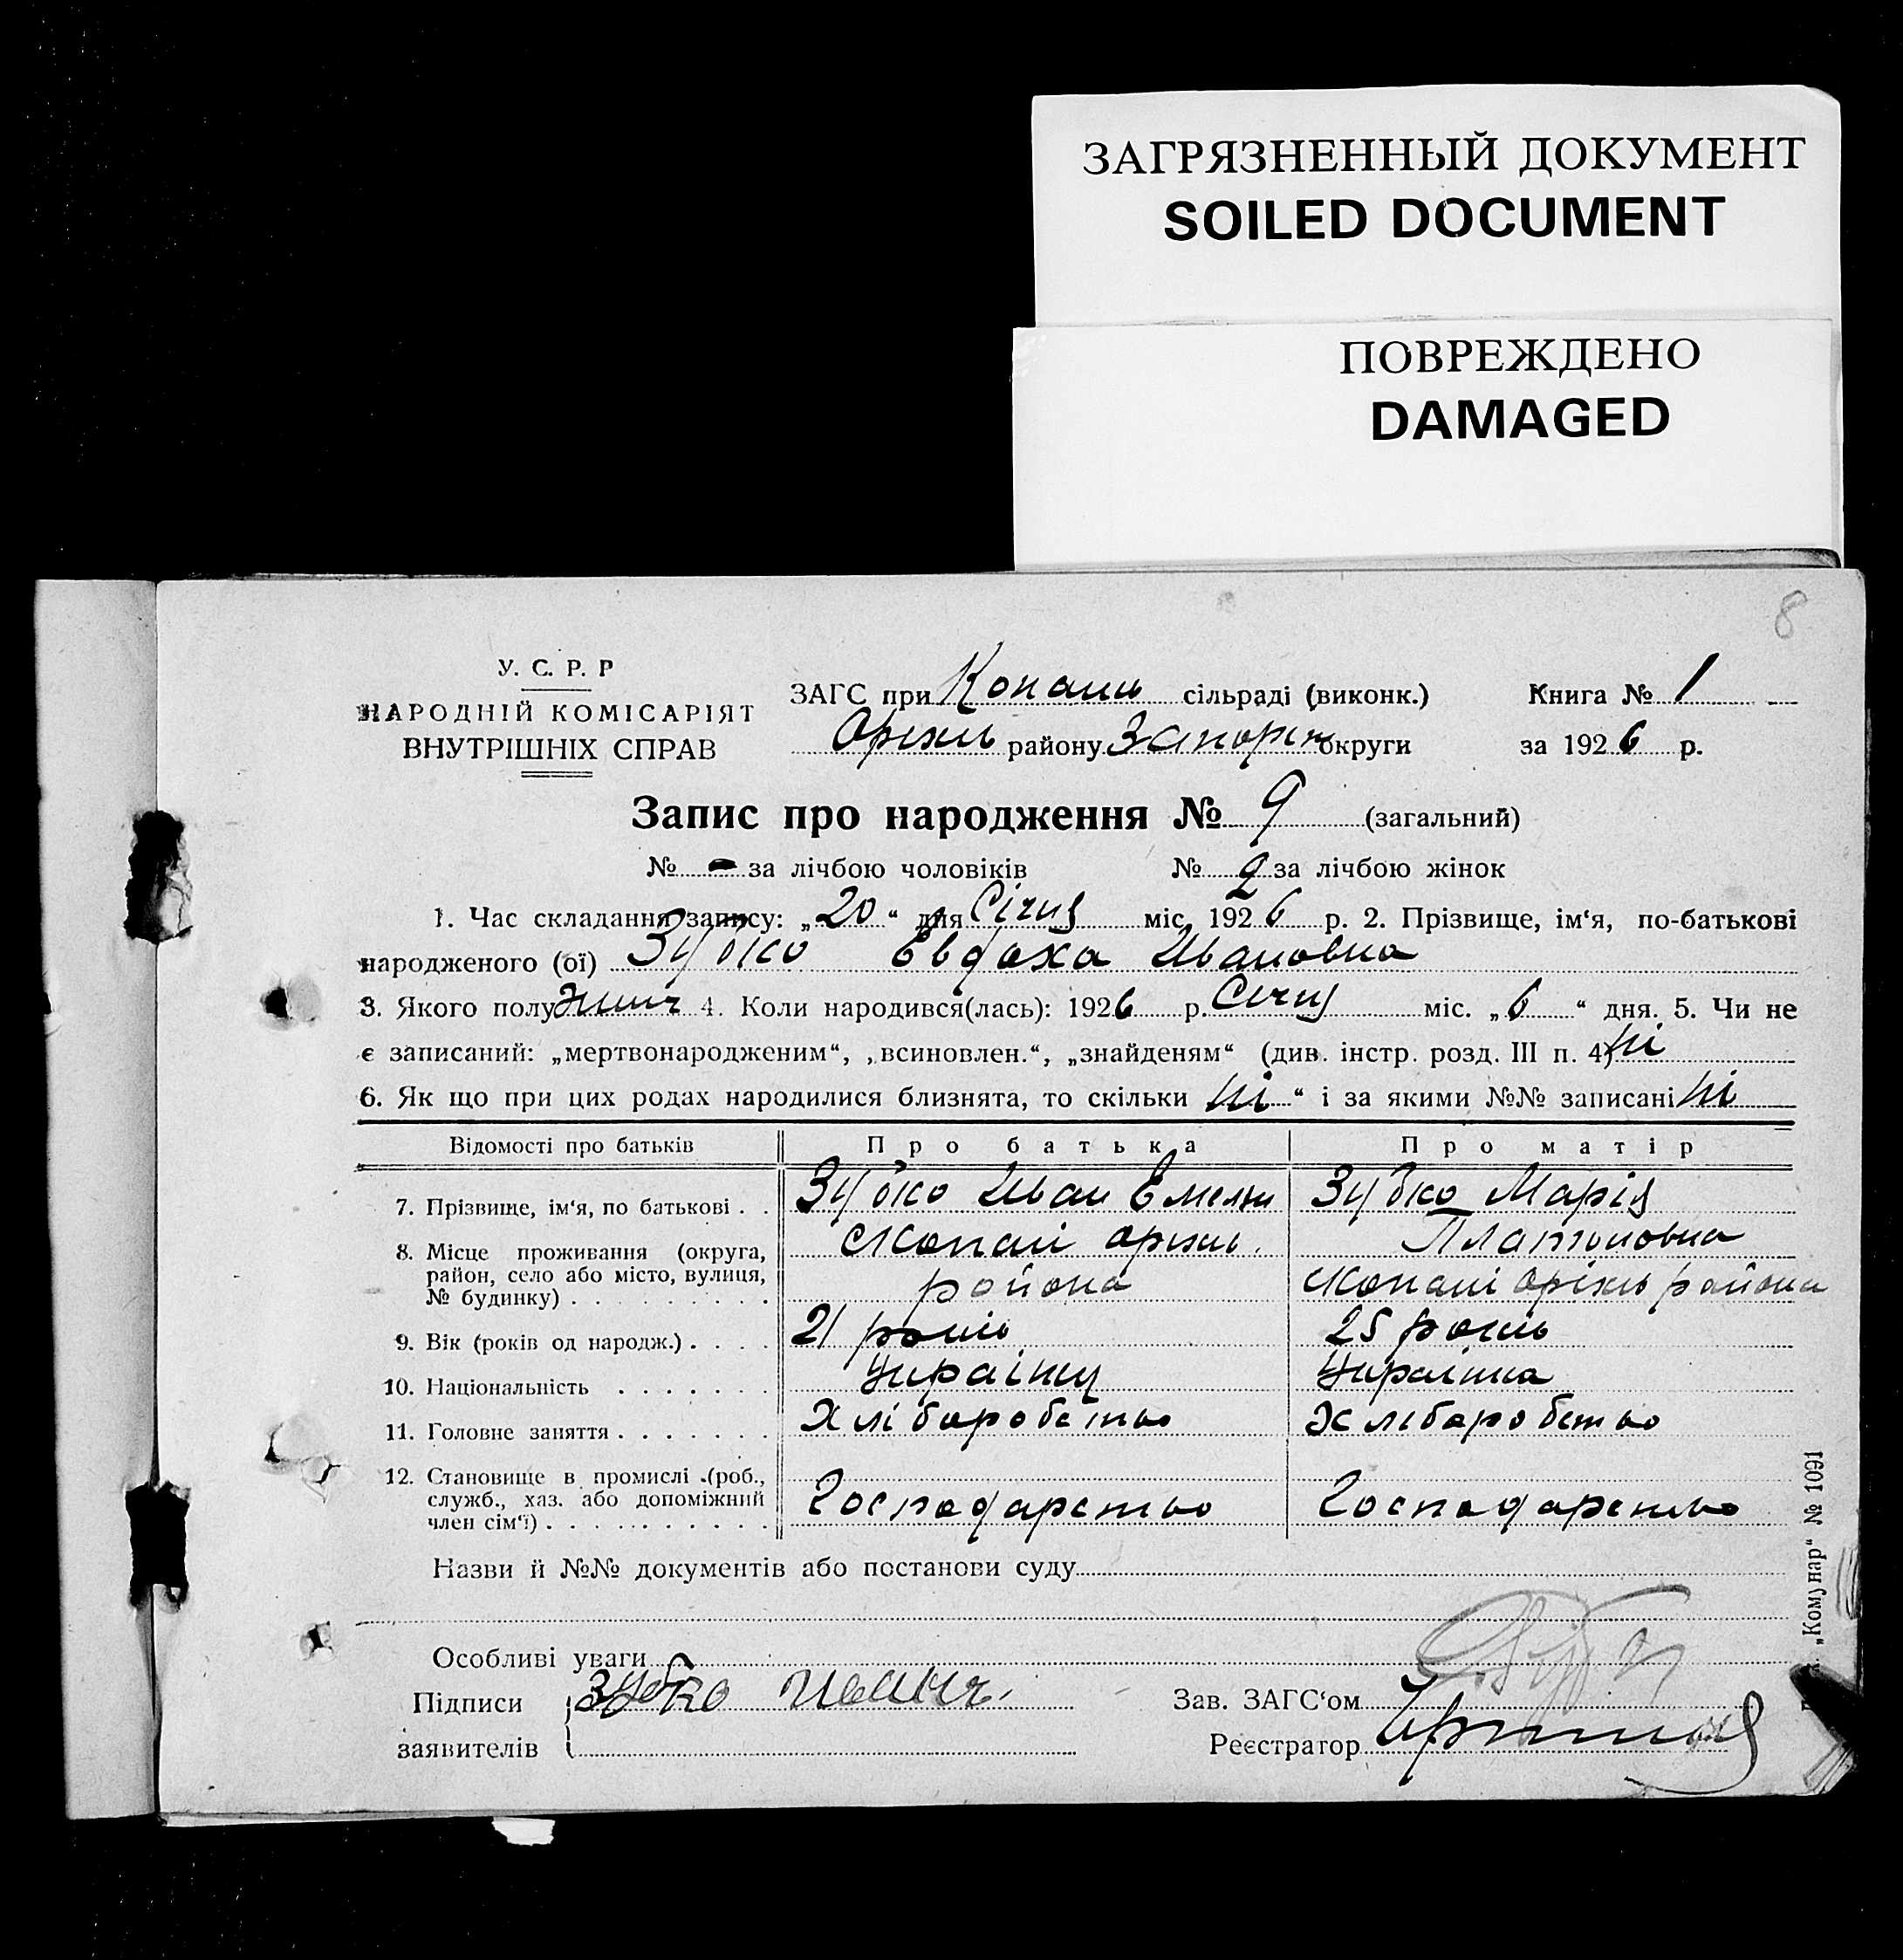 ЗАГРЯЗНЕННЫЙ ДОКУМЕНТ
SOILED DOCUMENT
ПОВРЕЖДЕНО
DAMAGED
8
У. С. Р. Р
НАРОДНІЙ КОМІСАРІЯТ
ВНУТРІШНІХ СПРАВ
ЗАГС при Копань сільраді (виконк.) Книга № 1
Оріхів району Запоріж округи за 1926 р.
Запис про народження № 9 (загальний)
№ - за лічбою чоловіків № 9 за лічбою жінок
1. Час складання запису: „20“ дня Січня міс. 1926 р. 2. Прізвище, ім‘я, по-батькові
народженого (ої) Зубко Евдоха Ивановна
3. Якого полу жінч 4. Коли народився(лась): 1926 р. Січня міс. „6“ дня. 5. Чи не
є записаний: „мертвонародженим“, „всиновлен.“, „знайденям“ (див. інстр. розд. III п. 4) ні
6. Як що при цих родах народилися близнята, то скільки ні “ і за якими №№ записані ні
Відомості про батьків Про батька Про матір
7. Прізвище, ім‘я, по батькові . . Зубко Иван Емельн Зубко Марія
Платоновна
8. Місце проживання (округа,
район, село або місто, вулиця,
№ будинку) . . . . . . . . .
с Копані Оріхів. района
с Копані Оріхів района
9. Вік (років од народж.) . . . . 21 років 25 років
10. Національність . . . . . . . Українц Українка
11. Головне заняття . . . . . . . Хліборобство Хліборобство
12. Становище в промислі (роб.,
служб., хаз. або допоміжний
член сім‘ї) . . . . . . . . . . .
Господарство Господарство
Назви й №№ документів або постанови суду
Особливі уваги
Підписи Зубко Зав. ЗАГС‘ом
заявителів Реєстратор
„Комунар“ № 1091